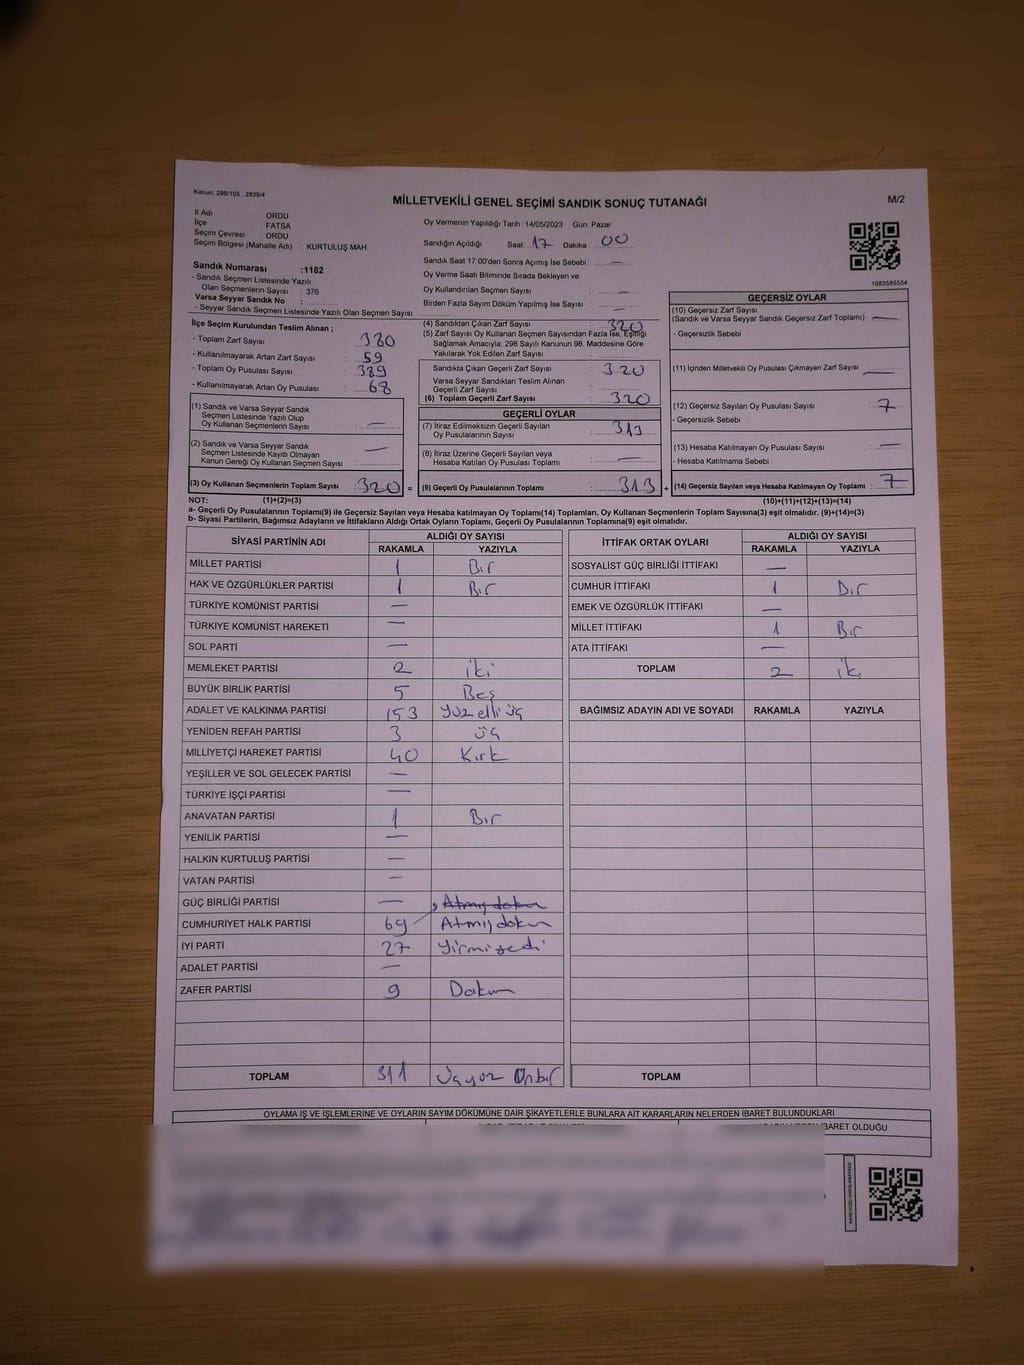 Kanun, 298/105 , 2839/4
MİLLETVEKİLİ GENEL SEÇİMİ SANDIK SONUÇ TUTANAĞI
M/2
İl Adı : ORDU
İlçe : FATSA
Seçim Çevresi : ORDU
Seçim Bölgesi (Mahalle Adı) : KURTULUŞ MAH
Sandık Numarası :1182
- Sandık Seçmen Listesinde Yazılı
Olan Seçmenlerin Sayısı : 376
Varsa Seyyar Sandık No :
- Seyyar Sandık Seçmen Listesinde Yazılı Olan Seçmen Sayısı:
Oy Vermenin Yapıldığı Tarih :14/05/2023 Gün: Pazar
Sandığın Açıldığı Saat: 17 Dakika 00
Sandık Saat 17:00'den Sonra Açımış İse Sebebi : —
Oy Verme Saati Bitiminde Sırada Bekleyen ve
Oy Kullandırılan Seçmen Sayısı : —
Birden Fazla Sayım Döküm Yapılmış İse Sayısı : —
1083585554
İlçe Seçim Kurulundan Teslim Alınan ;
- Toplam Zarf Sayısı : 380
- Kullanılmayarak Artan Zarf Sayısı : 59
- Toplam Oy Pusulası Sayısı : 389
- Kullanılmayarak Artan Oy Pusulası : 68
(1) Sandık ve Varsa Seyyar Sandık
Seçmen Listesinde Yazılı Olup
Oy Kullanan Seçmenlerin Sayısı : —
(2) Sandık ve Varsa Seyyar Sandık
Seçmen Listesinde Kayıtlı Olmayan
Kanun Gereği Oy Kullanan Seçmen Sayısı : —
(3) Oy Kullanan Seçmenlerin Toplam Sayısı : 320 =
(4) Sandıktan Çıkan Zarf Sayısı : 320
(5) Zarf Sayısı Oy Kullanan Seçmen Sayısından Fazla İse, Eşitliği
Sağlamak Amacıyla, 298 Sayılı Kanunun 98. Maddesine Göre
Yakılarak Yok Edilen Zarf Sayısı :
Sandıkta Çıkan Geçerli Zarf Sayısı : 320
Varsa Seyyar Sandıktan Teslim Alınan
Geçerli Zarf Sayısı :
(6) Toplam Geçerli Zarf Sayısı : 320
GEÇERLİ OYLAR
(7) İtiraz Edilmeksizin Geçerli Sayılan
Oy Pusulalarının Sayısı : 313
(8) İtiraz Üzerine Geçerli Sayılan veya
Hesaba Katılan Oy Pusulası Toplamı : —
(9) Geçerli Oy Pusulalarının Toplamı : 313 +
GEÇERSİZ OYLAR
(10) Geçersiz Zarf Sayısı
(Sandık ve Varsa Seyyar Sandık Geçersiz Zarf Toplamı) : —
- Geçersizlik Sebebi :
(11) İçinden Milletvekili Oy Pusulası Çıkmayan Zarf Sayısı : —
(12) Geçersiz Sayılan Oy Pusulası Sayısı : 7
- Geçersizlik Sebebi :
(13) Hesaba Katılmayan Oy Pusulası Sayısı : —
- Hesaba Katılmama Sebebi :
(14) Geçersiz Sayılan veya Hesaba Katılmayan Oy Toplamı : 7
NOT: (1)+(2)=(3) (10)+(11)+(12)+(13)=(14)
a- Geçerli Oy Pusulalarının Toplamı(9) ile Geçersiz Sayılan veya Hesaba katılmayan Oy Toplamı(14) Toplamları, Oy Kullanan Seçmenlerin Toplam Sayısına(3) eşit olmalıdır. (9)+(14)=(3)
b- Siyasi Partilerin, Bağımsız Adayların ve İttifakların Aldığı Ortak Oyların Toplamı, Geçerli Oy Pusulalarının Toplamına(9) eşit olmalıdır.
SİYASİ PARTİNİN ADI ALDIĞI OY SAYISI
RAKAMLA YAZIYLA
MİLLET PARTİSİ 1 Bir
HAK VE ÖZGÜRLÜKLER PARTİSİ 1 Bir
TÜRKİYE KOMÜNİST PARTİSİ —
TÜRKİYE KOMÜNİST HAREKETİ —
SOL PARTİ —
MEMLEKET PARTİSİ 2 iki
BÜYÜK BİRLİK PARTİSİ 5 Beş
ADALET VE KALKINMA PARTİSİ 153 Yüzelli üç
YENİDEN REFAH PARTİSİ 3 üç
MİLLİYETÇİ HAREKET PARTİSİ 40 Kırk
YEŞİLLER VE SOL GELECEK PARTİSİ —
TÜRKİYE İŞÇİ PARTİSİ —
ANAVATAN PARTİSİ 1 Bir
YENİLİK PARTİSİ —
HALKIN KURTULUŞ PARTİSİ —
VATAN PARTİSİ —
GÜÇ BİRLİĞİ PARTİSİ — Atmışdokuz
CUMHURİYET HALK PARTİSİ 69 Atmışdokuz
İYİ PARTİ 27 Yirmiyedi
ADALET PARTİSİ —
ZAFER PARTİSİ 9 Dokuz
TOPLAM 311 Üçyüz Onbir
İTTİFAK ORTAK OYLARI ALDIĞI OY SAYISI
RAKAMLA YAZIYLA
SOSYALİST GÜÇ BİRLİĞİ İTTİFAKI —
CUMHUR İTTİFAKI 1 Bir
EMEK VE ÖZGÜRLÜK İTTİFAKI —
MİLLET İTTİFAKI 1 Bir
ATA İTTİFAKI —
TOPLAM 2 iki
BAĞIMSIZ ADAYIN ADI VE SOYADI RAKAMLA YAZIYLA
TOPLAM
OYLAMA İŞ VE İŞLEMLERİNE VE OYLARIN SAYIM DÖKÜMÜNE DAİR ŞİKAYETLERLE BUNLARA AİT KARARLARIN NELERDEN İBARET BULUNDUKLARI
İBARET OLDUĞU